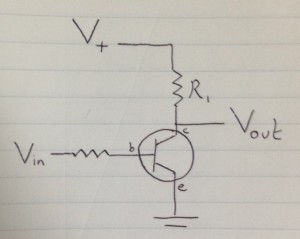 V+
R1
c
Vout
Vin
b
e